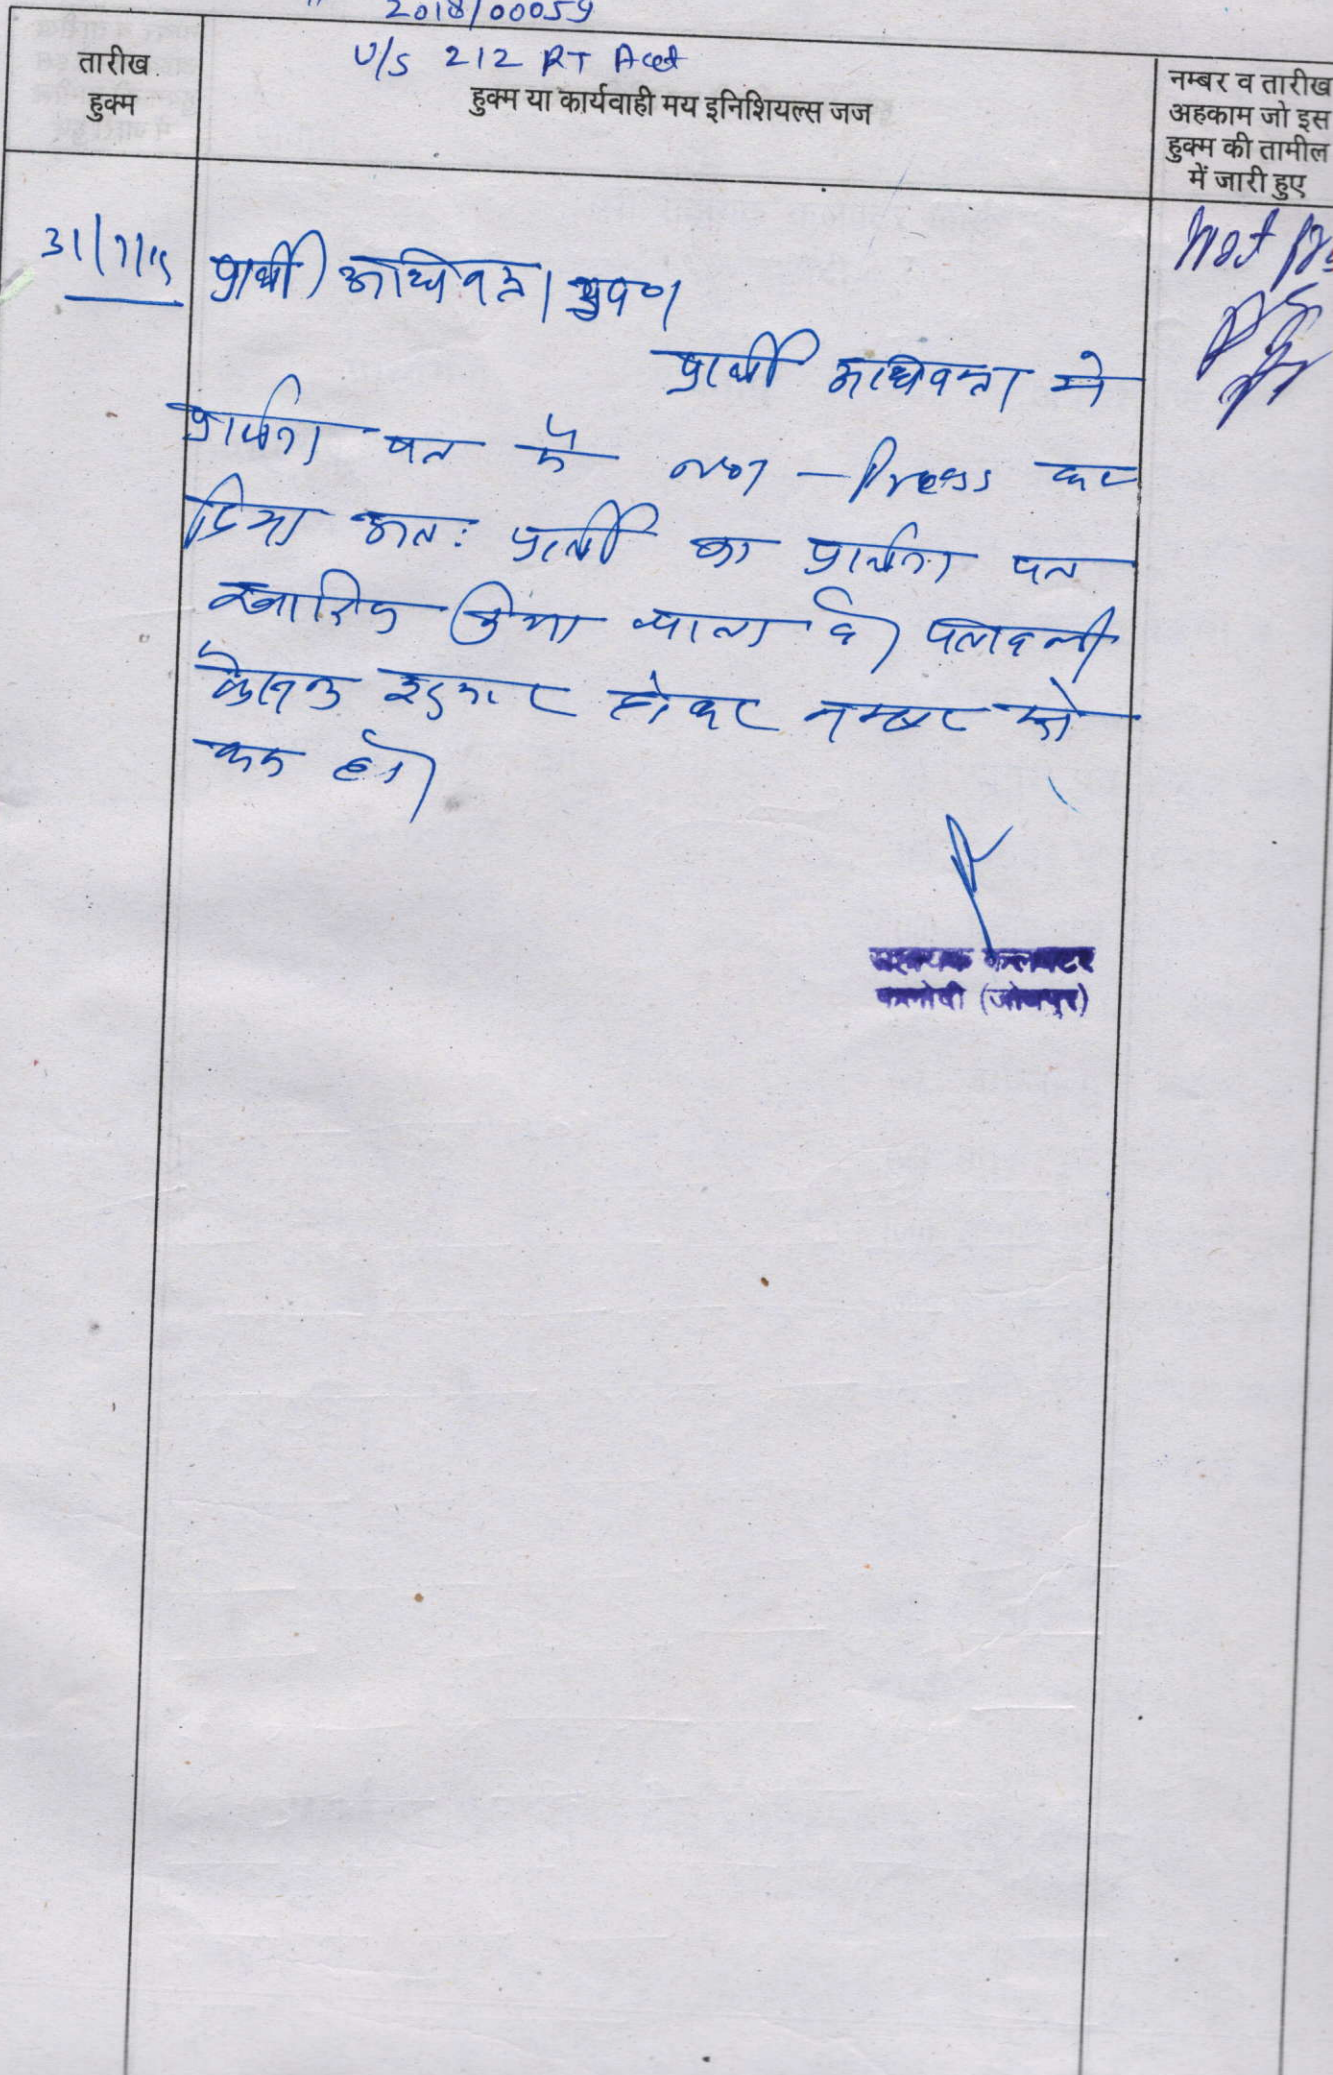 2018/00059
U/S 212 RT Act
तारीख
हुक्म
हुक्म या कार्यवाही मय इनिशियल्स जज
नम्बर व तारीख
अहकाम जो इस
हुक्म की तामील
में जारी हुए
31/7/19
Not
प्रार्थी अधिवक्ता
प्रार्थी अधिवक्ता ने
प्रार्थना पत्र में not - Press कर
दिया अतः प्रार्थी का प्रार्थना पत्र
खारिज किया जाता है। पत्रावली
फैसल शुमार होकर नम्बर से
कम हो।
सहायक कलक्टर
फलोदी (जोधपुर)